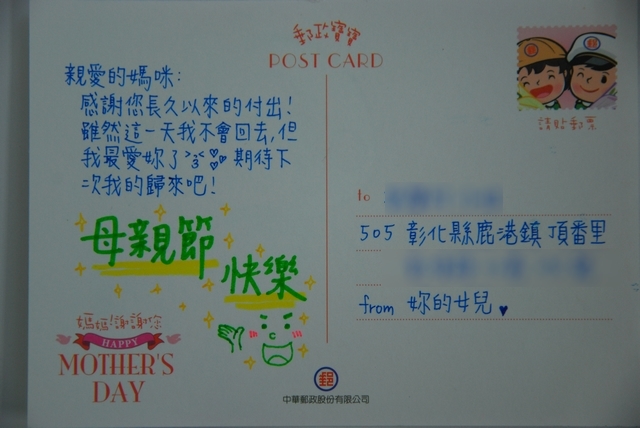 郵政寶寶
POST CARD
請貼郵票
親愛的媽咪：
感謝您長久以來的付出！
雖然這一天我不會回去,但
我最愛妳了 >3< 期待下
次我的歸來吧！
母親節
快樂
媽媽!謝謝你
HAPPY
MOTHER'S
DAY
to
505 彰化縣鹿港鎮 頂番里
from 妳的女兒 ♥
郵
中華郵政股份有限公司